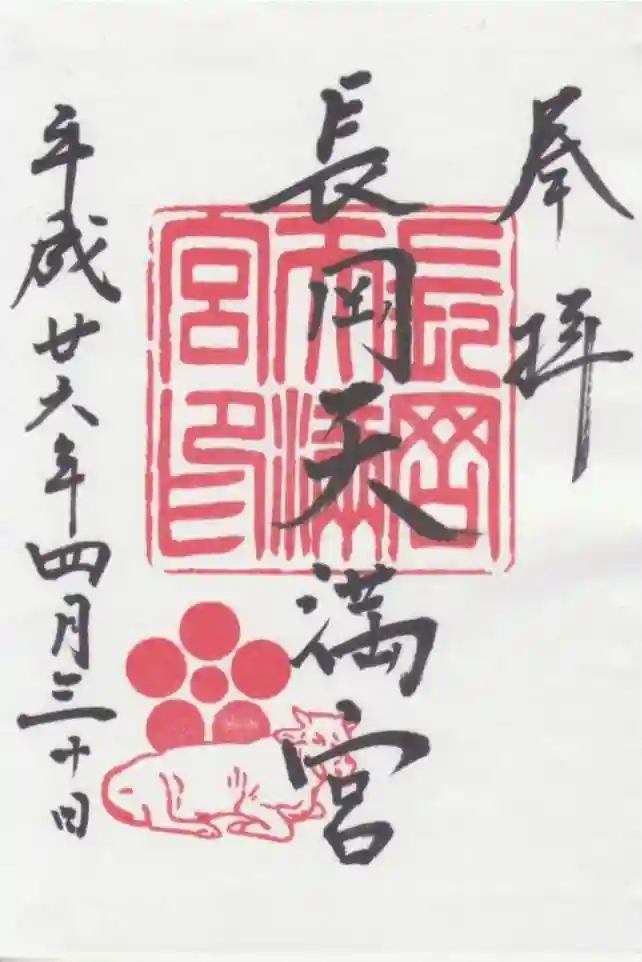 奉拝
長岡天満宮
長岡天満宮印
平成廿六年四月三十日